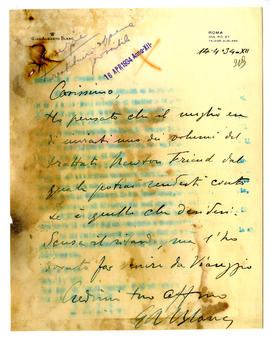 GIAN ALBERTO BLANC
ROMA
VIA PO 27
14-4-34-XII
16 APR 1934 Anno XII
Carissimo,
Ho pensato che il meglio era
di inviarti uno dei volumi del
trattato Newton Friend dal
quale potrai renderti conto
se è quello che desideri.
Scusa il ritardo, ma l'ho
dovuto far venire da Viareggio
Credimi tuo affmo
GABlanc